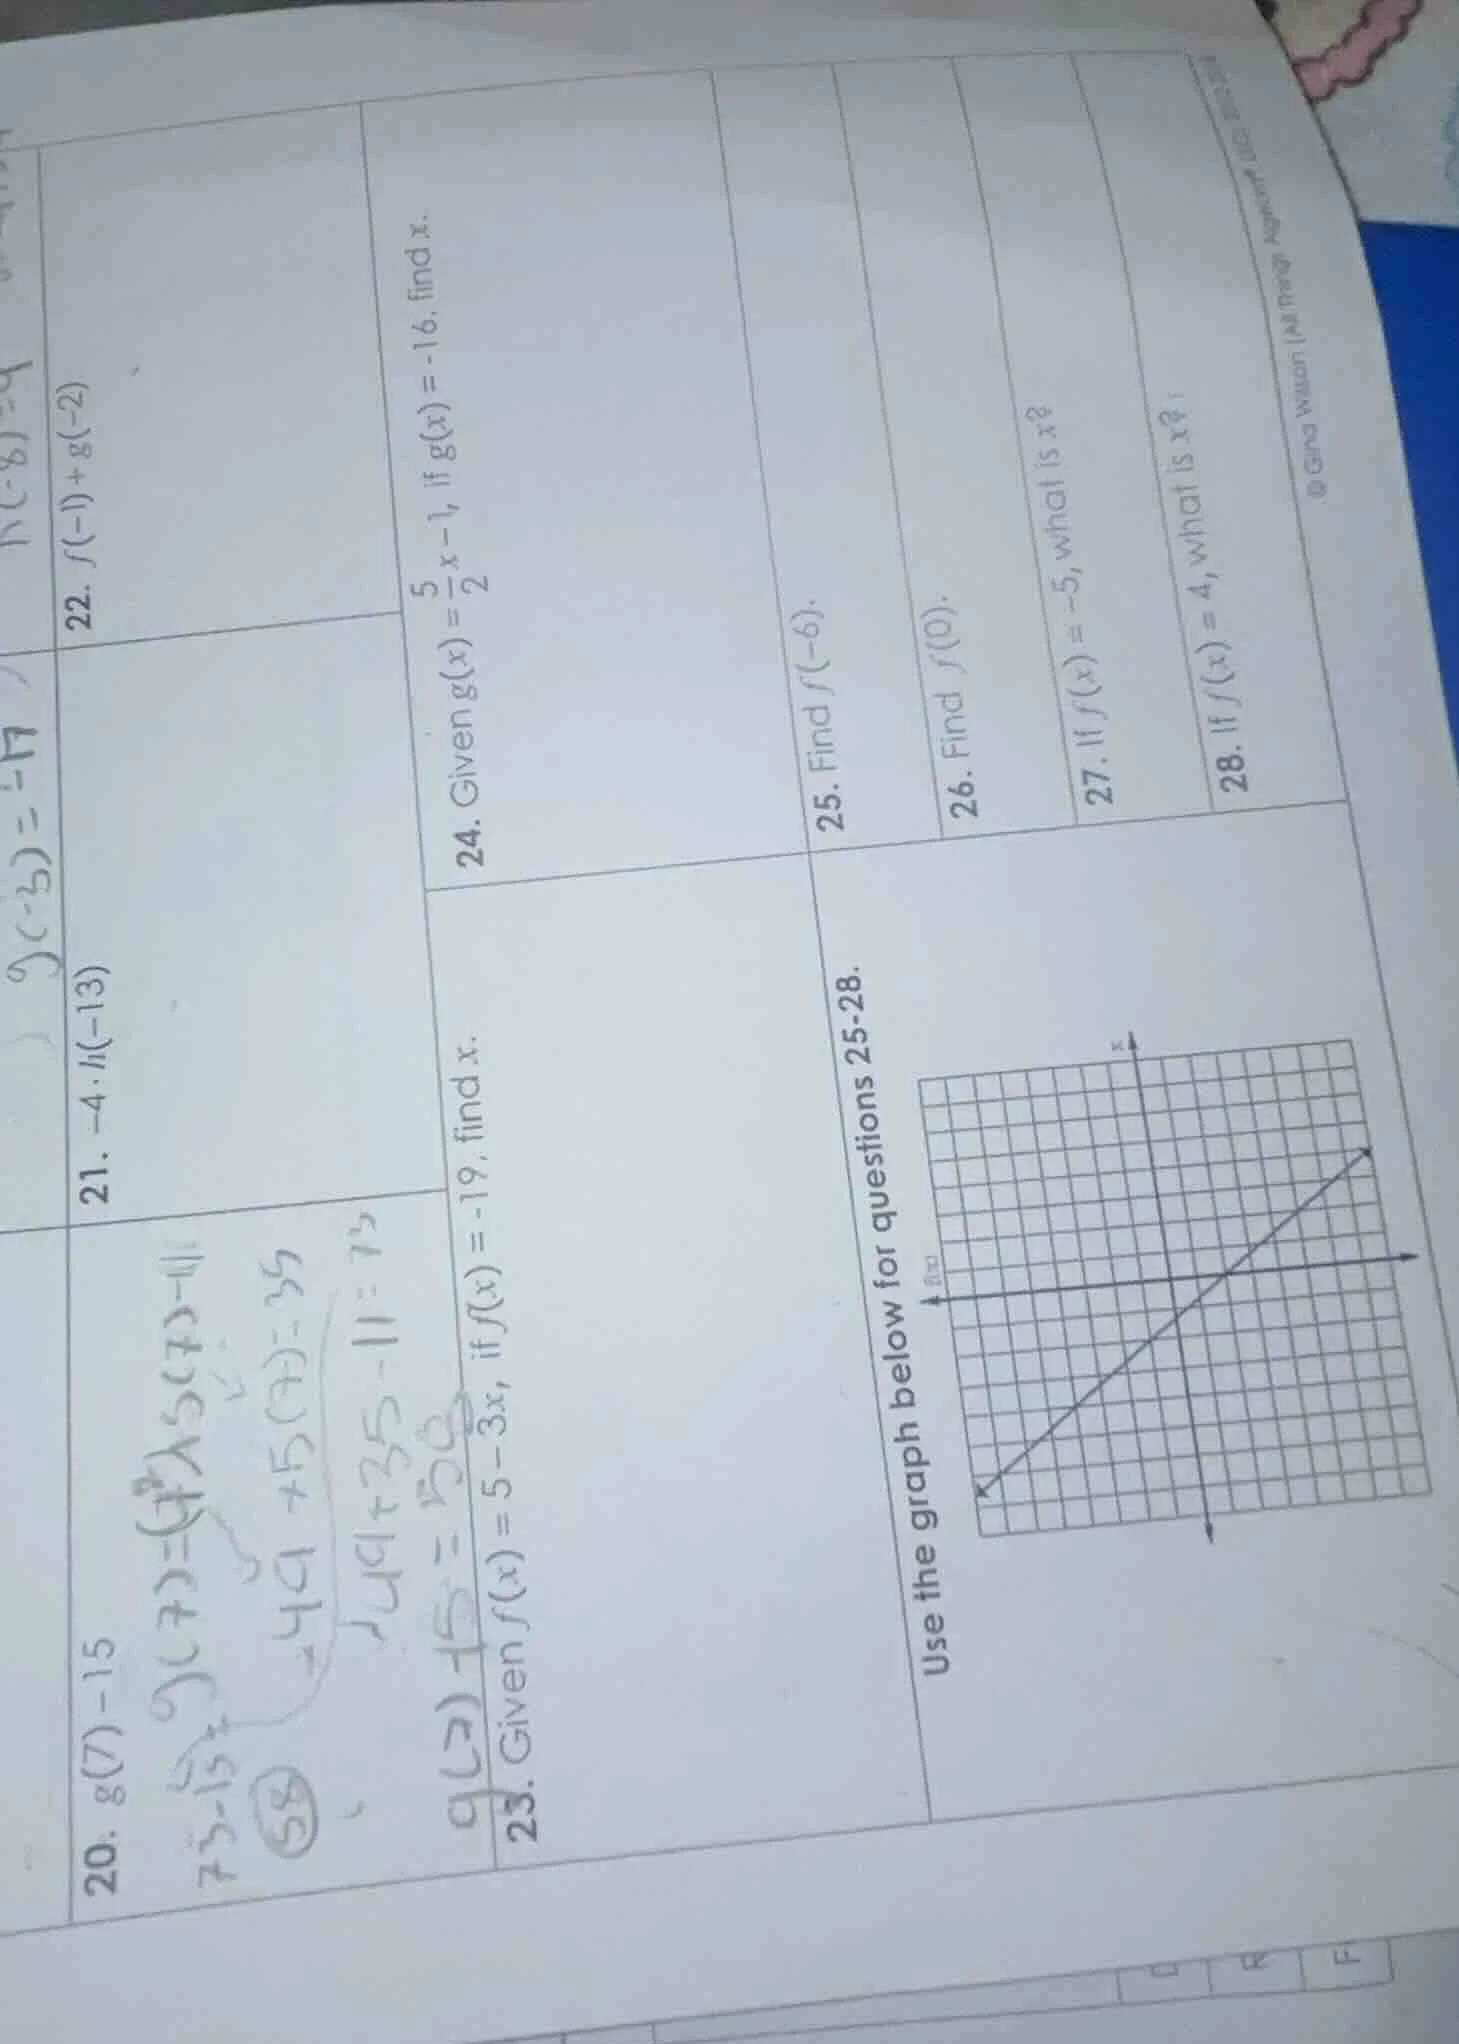 g(-3) = -17
h(-8) = 4
20. g(7) – 15
g(7) = (7²) + 5(7) - 11
73-15 =
58
49 + 5(7) = 35
49 + 35 - 11 = 73
g(7) - 15 = 58
21. –4 · h(–13)
22. f(–1) + g(–2)
23. Given f(x) = 5 – 3x, if f(x) = -19, find x.
24. Given g(x) = 5/2 x – 1, if g(x) = -16, find x.
Use the graph below for questions 25-28.
f(x)
x
25. Find f(–6).
26. Find f(0).
27. If f(x) = –5, what is x?
28. If f(x) = 4, what is x?
© Gina Wilson (All Things Algebra
R